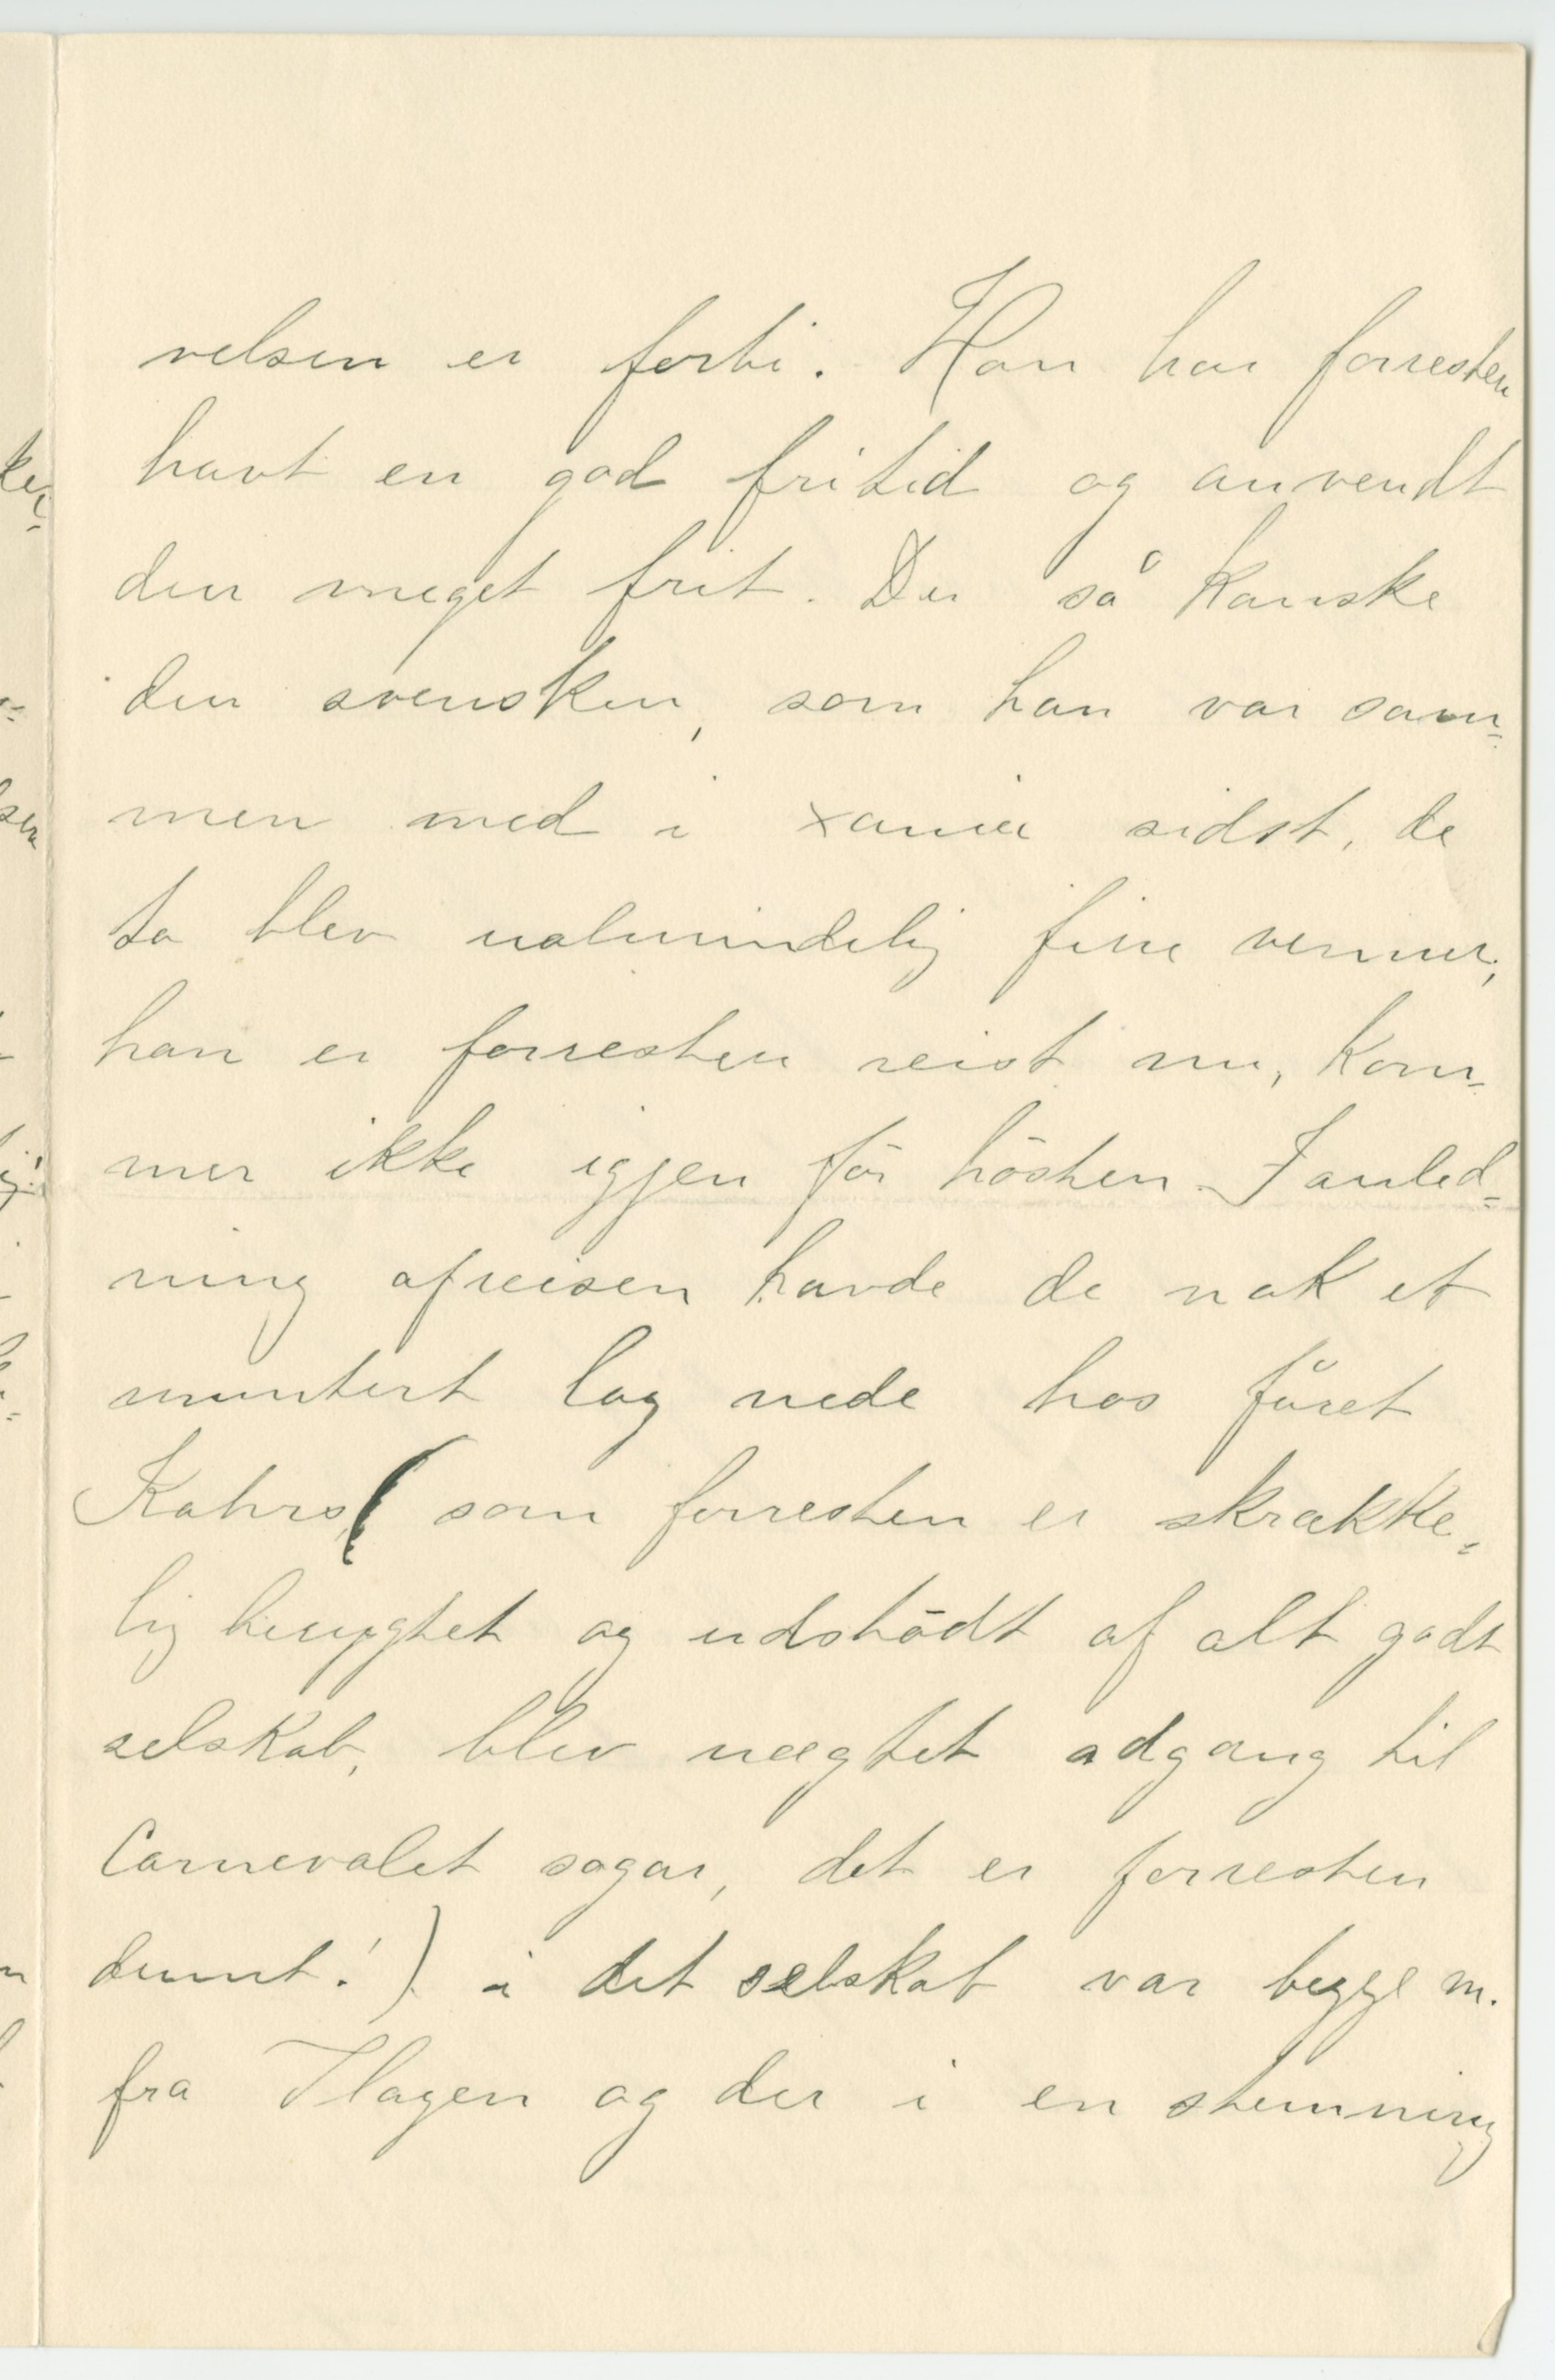 velsen er forbi. Han har forresten
havt en god fritid og anvendt
den meget frit. Du så kanske
den svensken, som han var sam=
men med i xania sidst, de
to blev ualmindelig fine venner,
han er forresten reist nu, kom=
mer ikke igjen för hösten. I anled=
ning afreisen havde de nok et
muntert lag nede hos fåret
Kahrs( som forresten er skrække=
lig berygtet og udstödt af alt godt
selskab, blev nægtet adgang til
Carnevalet sogar, det er forresten
dumt!) i det selskab var begge m.
fra Hagen og der i en stemning